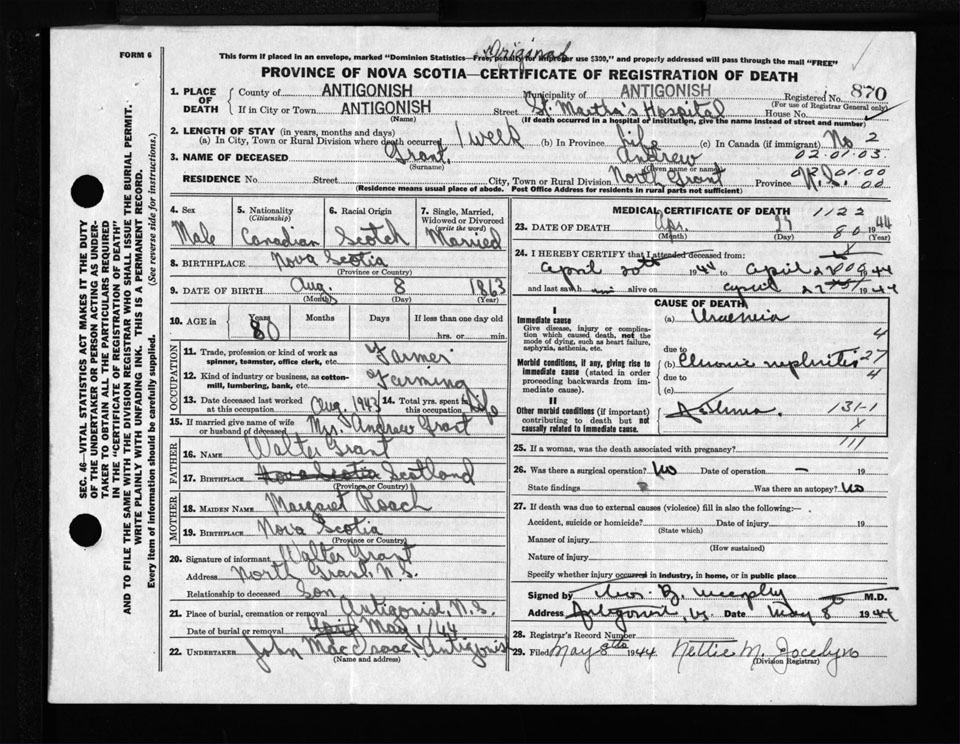 Original
FORM 6
This form if placed in an envelope, marked "Dominion Statistics—Free, penalty for improper use $300," and properly addressed will pass through the mail "FREE"
PROVINCE OF NOVA SCOTIA—CERTIFICATE OF REGISTRATION OF DEATH
1. PLACE OF DEATH County of ANTIGONISH Municipality of ANTIGONISH Registered No. 870
(For use of Registrar General only)
If in City or Town ANTIGONISH Street St. Martha's Hospital House No.
(Name) (If death occurred in a hospital or institution, give the name instead of street and number)
2. LENGTH OF STAY (in years, months and days)
(a) In City, Town or Rural Division where death occurred 1 week (b) In Province Life (c) In Canada (if immigrant) No 2
3. NAME OF DECEASED Grant, Andrew 02.01.03.
(Surname) (Given name or names)
RESIDENCE No. Street City, Town or Rural Division North Grant Province N.S. 01.00 00
(Residence means usual place of abode. Post Office Address for residents in rural parts not sufficient)
4. Sex Male
5. Nationality (Citizenship) Canadian
6. Racial Origin Scotch
7. Single, Married, Widowed or Divorced (write the word) Married
8. BIRTHPLACE Nova Scotia
(Province or Country)
9. DATE OF BIRTH Aug. 8 1863
(Month) (Day) (Year)
10. AGE in Years 80 Months Days If less than one day old
hrs. or min.
OCCUPATION
11. Trade, profession or kind of work as spinner, teamster, office clerk, etc. Farmer
12. Kind of industry or business, as cotton-mill, lumbering, bank, etc. Farming
13. Date deceased last worked at this occupation Aug. 1943 14. Total yrs. spent in this occupation Life
15. If married give name of wife or husband of deceased Mrs. Andrew Grant
FATHER
16. Name Walter Grant
17. Birthplace Nova Scotia Scotland
(Province or Country)
MOTHER
18. Maiden Name Margaret Roach
19. Birthplace Nova Scotia
(Province or Country)
20. Signature of informant Walter Grant
Address North Grant, N.S.
Relationship to deceased Son
21. Place of burial, cremation or removal Antigonish, N.S.
Date of burial or removal April May 1/44
22. UNDERTAKER John MacIsaac, Antigonish
(Name and address)
MEDICAL CERTIFICATE OF DEATH 1122
23. DATE OF DEATH Apr. 27 1944
(Month) (Day) 80 (Year)
24. I HEREBY CERTIFY that I attended deceased from: X
April 20th 1944 to April 27 1944
and last saw him alive on April 27 1944
CAUSE OF DEATH
I
Immediate cause (a) Uraemia 4
Give disease, injury or complication which caused death, not the mode of dying, such as heart failure, asphyxia, asthenia, etc.
due to
Morbid conditions, if any, giving rise to immediate cause (stated in order proceeding backwards from immediate cause). (b) Chronic nephritis 27
due to 4
(c)
II
Other morbid conditions (if important) contributing to death but not causally related to immediate cause. Asthma. 131-1
X
25. If a woman, was the death associated with pregnancy? 111
26. Was there a surgical operation? No Date of operation - 19
State findings Was there an autopsy? No
27. If death was due to external causes (violence) fill in also the following:-
Accident, suicide or homicide? Date of injury 19
(State which)
Manner of injury
(How sustained)
Nature of injury
Specify whether injury occurred in industry, in home, or in public place
Signed by B. Murphy M.D.
Address Antigonish, N.S. Date May 8 1944
28. Registrar's Record Number
29. Filed May 8th 1944 Nettie M. Jocelyn
(Division Registrar)
SEC. 46—VITAL STATISTICS ACT MAKES IT THE DUTY
OF THE UNDERTAKER OR PERSON ACTING AS UNDER-
TAKER TO OBTAIN ALL THE PARTICULARS REQUIRED
IN THE "CERTIFICATE OF REGISTRATION OF DEATH"
AND TO FILE THE SAME WITH THE DIVISION REGISTRAR WHO SHALL ISSUE THE BURIAL PERMIT.
WRITE PLAINLY WITH UNFADING INK. THIS IS A PERMANENT RECORD.
Every item of information should be carefully supplied. (See reverse side for instructions.)